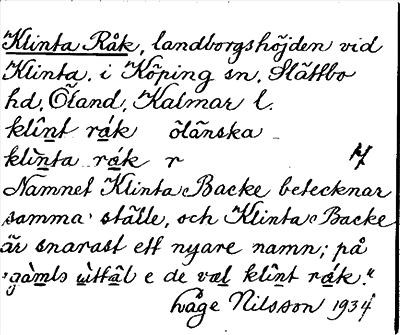 Klinta Råk, landborgshöjden vid
Klinta, i Köping sn, Slättbo
hd, Öland, Kalmar l.
klînt råk öländska
klìnta råk r
Namnet Klinta Backe betecknar
samma ställe, och Klinta Backe
är snarast ett nyare namn; på
"gàmls ùtfâl e de væl klînt råk."
Håge Nilsson 1934